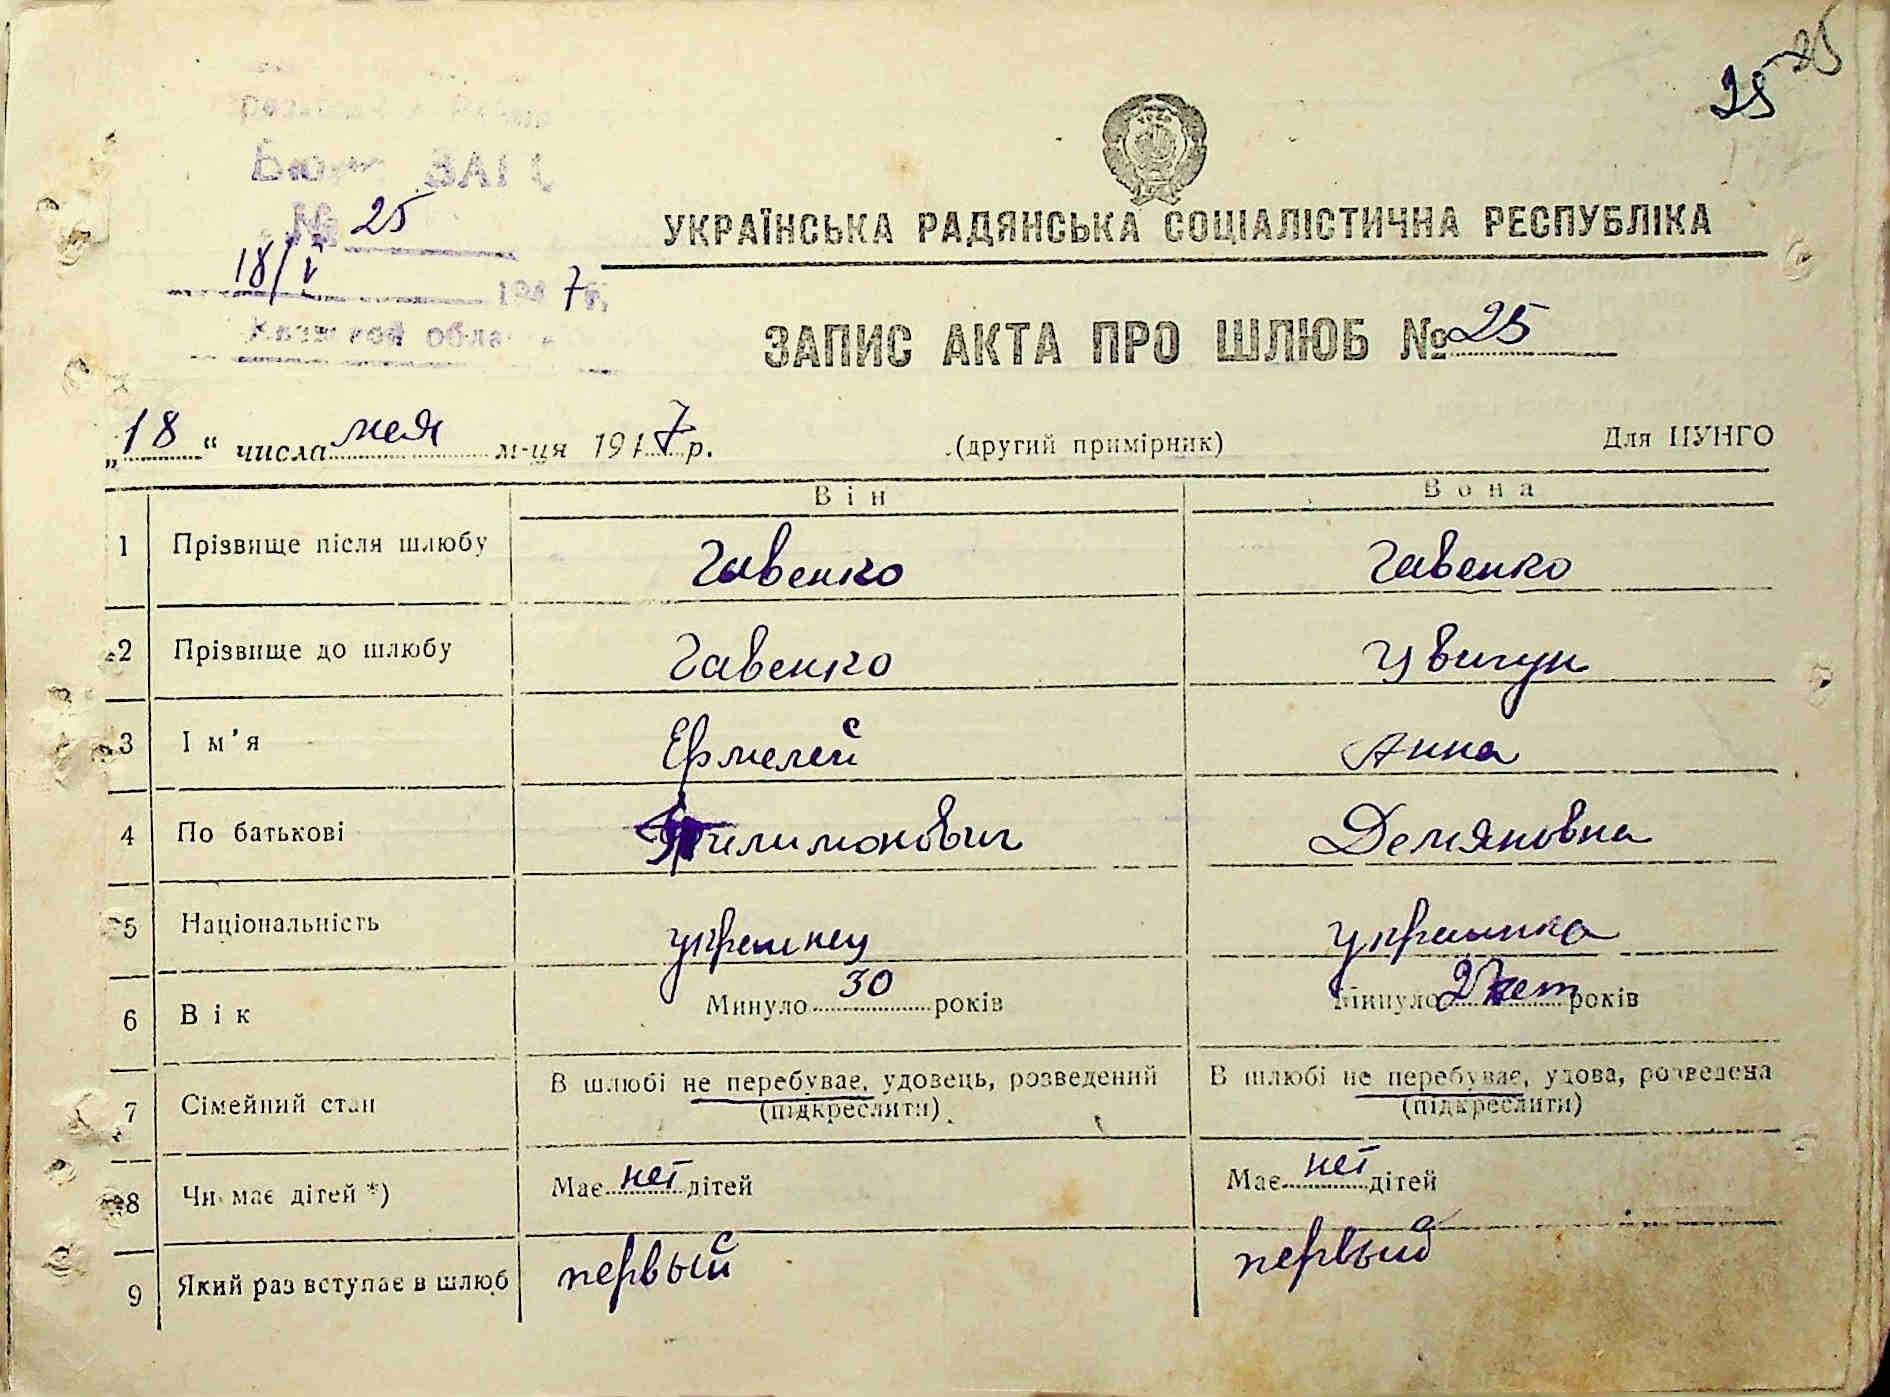 25 25
Бюро ЗАГС
№ 25
18/V 1947 г.
Киевской области
УКРАЇНСЬКА РАДЯНСЬКА СОЦІАЛІСТИЧНА РЕСПУБЛІКА
ЗАПИС АКТА ПРО ШЛЮБ № 25
„18“ числа мая м-ця 1947 р. (другий примірник) Для ЦУНГО
Він Вона
1 Прізвище після шлюбу Гавенко Гавенко
2 Прізвище до шлюбу Гавенко Цвигун
3 Ім’я Ермелей Анна
4 По батькові Филимонович Демяновна
5 Національність украинец украинка
6 Вік Минуло 30 років Минуло лет років
7 Сімейний стан В шлюбі не перебуває, удовець, розведений В шлюбі не перебуває, удова, розведена
(підкреслити) (підкреслити)
8 Чи має дітей *) Має нет дітей Має нет дітей
9 Який раз вступає в шлюб первый первый